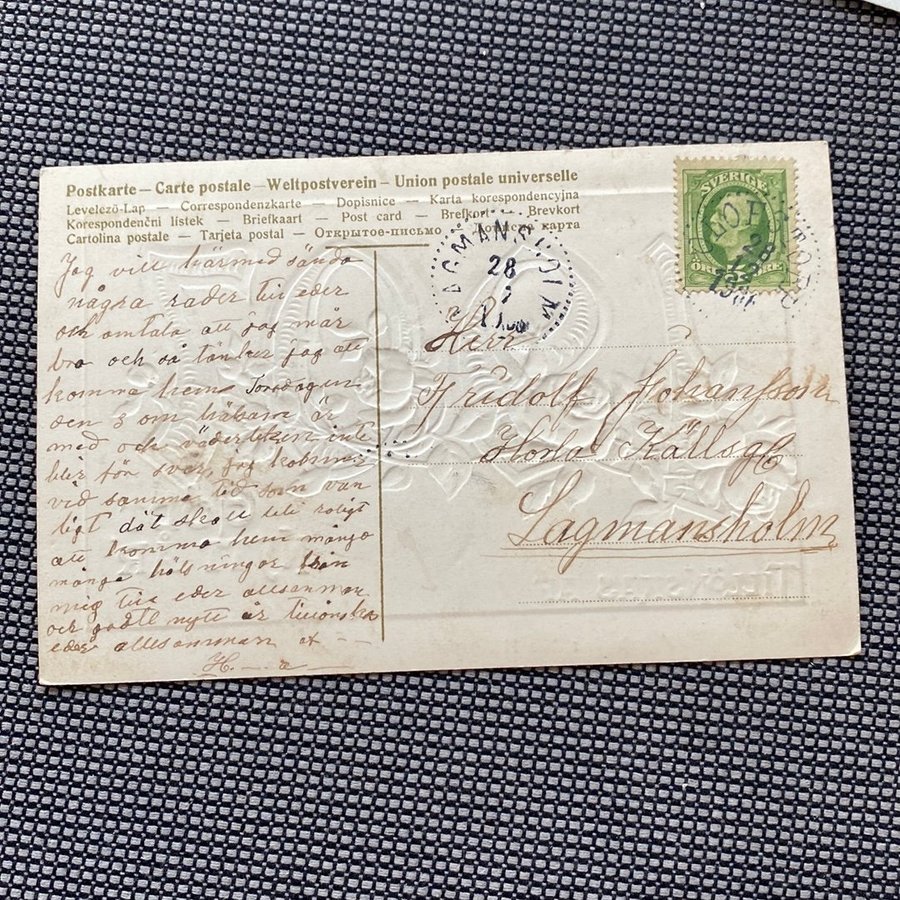 Postkarte – Carte postale – Weltpostverein – Union postale universelle
Levelező-Lap — Correspondenzkarte — Dopisnice — Karta korespondencyjna
Korespondenční lístek — Briefkaart — Post card — Brefkort — Brevkort
Cartolina postale — Tarjeta postal — Открытое-письмо — Дописна карта
SVERIGE
ÖRE 5 ÖRE
LAGMANSHOLM
28
Jag vill härmed sända
några rader till eder
och omtala att jag mår
bra och så tänker jag att
komma hem Torsdagen
den 3 om hälsam är
med och väderleken inte
blir för svår, jag kommer
vid samma tid som van
ligt dät skall bli roligt
att komma hem många
många hälsningar från
mig till eder allesamman
och godt nytt år tillönskas
eder allesamman af
H. – a
Herr
Fridolf Johansson
Horla Källsg
Lagmansholm